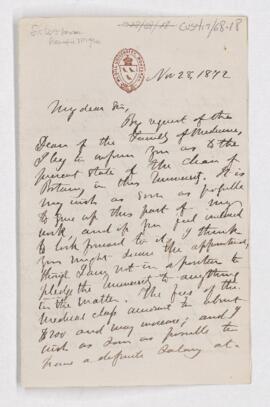 CUSH17/68-18
Nov 28, 1872
My dear Sir,
By request of the
Dean of the Faculty of Medicine,
I beg to inform you as to the
present state of the Chair of
Botany in this University. It is
my wish as soon as possible
to give up this part of my
work, and if you feel inclined
to look forward to it, I think
you might secure the appointment,
though I am not in a position to
pledge the University to anything
in the matter. The fees of the
Medical class amount to about
$200 and may increase; and I
wish as soon as possible to
have a definite salary at-